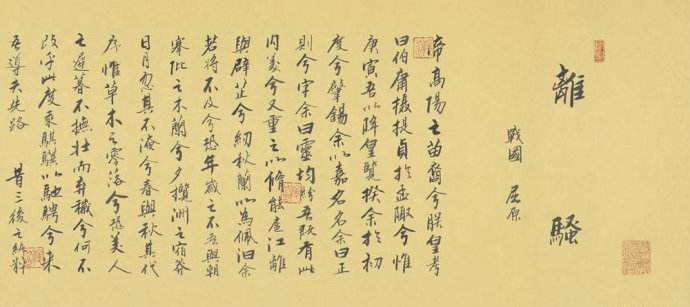 離騷
戰國 屈原
帝高陽之苗裔兮朕皇考
曰伯庸攝提貞於孟陬兮惟
庚寅吾以降皇覽揆余於初
度兮肇錫余以嘉名名余曰正
則兮字余曰靈均紛吾既有此
內美兮又重之以脩能扈江離
與辟芷兮紉秋蘭以為佩汩余
若將不及兮恐年歲之不吾與朝
搴阰之木蘭兮夕攬洲之宿莽
日月忽其不淹兮春與秋其代
序惟草木之零落兮恐美人
之遲暮不撫壯而棄穢兮何不
改乎此度乘騏驥以馳騁兮來
吾導夫先路 昔三後之純粹